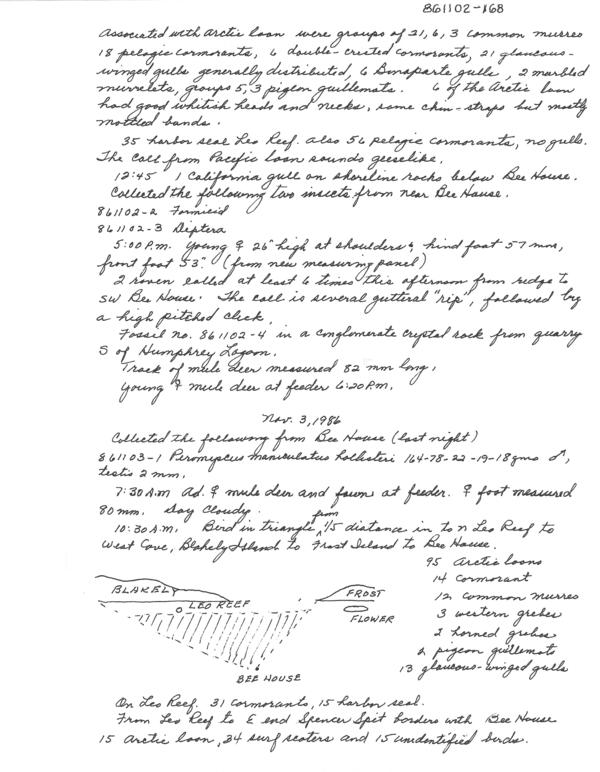 861102-168
Associated with Arctic loon were groups of 21, 6, 3 common murres
18 pelagic cormorants, 6 double-crested cormorants, 21 glaucous-
winged gulls generally distributed, 6 Bonaparte gulls, 2 marbled
murrelets, groups 5, 3 pigeon guillemots. 6 of the Arctic loon
had good whitish heads and necks, some chin-straps but mostly
mottled bands.
35 harbor seal Leo Reef. Also 56 pelagic cormorants, no gulls.
The call from Pacific loon sounds geeselike.
12:45 1 California gull on shoreline rocks below Bee House.
Collected the following two insects from near Bee House.
861102-2 Formicid
861102-3 Diptera
5:00 P.m. Young ♀ 26" high at shoulders, hind foot 57 mm,
front foot 53." (from new measuring panel)
2 raven called at least 6 times this afternoon from ridge to
SW Bee House. The call is several guttural "rip", followed by
a high pitched click.
Fossil no. 861102-4 in a conglomerate crystal rock from quarry
S of Humphrey Lagoon.
Track of mule deer measured 82 mm long.
Young ♀ mule deer at feeder 6:20 P.m.
Nov. 3, 1986
Collected the following from Bee House (last night)
861103-1 Peromyscus maniculatus hollisteri 164-78-22-19-18 gms ♂,
testis 2 mm.
7:30 A.m Ad. ♀ mule deer and fawn at feeder. ♀ foot measured
80 mm. Day Cloudy.
10:30 A.m. Bird in triangle, from 1/5 distance in to n Leo Reef to
West Cove, Blakely Island to Frost Island to Bee House.
95 Arctic loons
14 cormorant
12 common murres
3 western grebes
2 horned grebes
2 pigeon guillemots
13 glaucous-winged gulls
BLAKELY
LEO REEF
FROST
FLOWER
BEE HOUSE
On Leo Reef. 31 cormorants, 15 harbor seal.
From Leo Reef to E end Spencer Spit borders with Bee House
15 Arctic loon, 24 surf scoters and 15 unidentified birds.